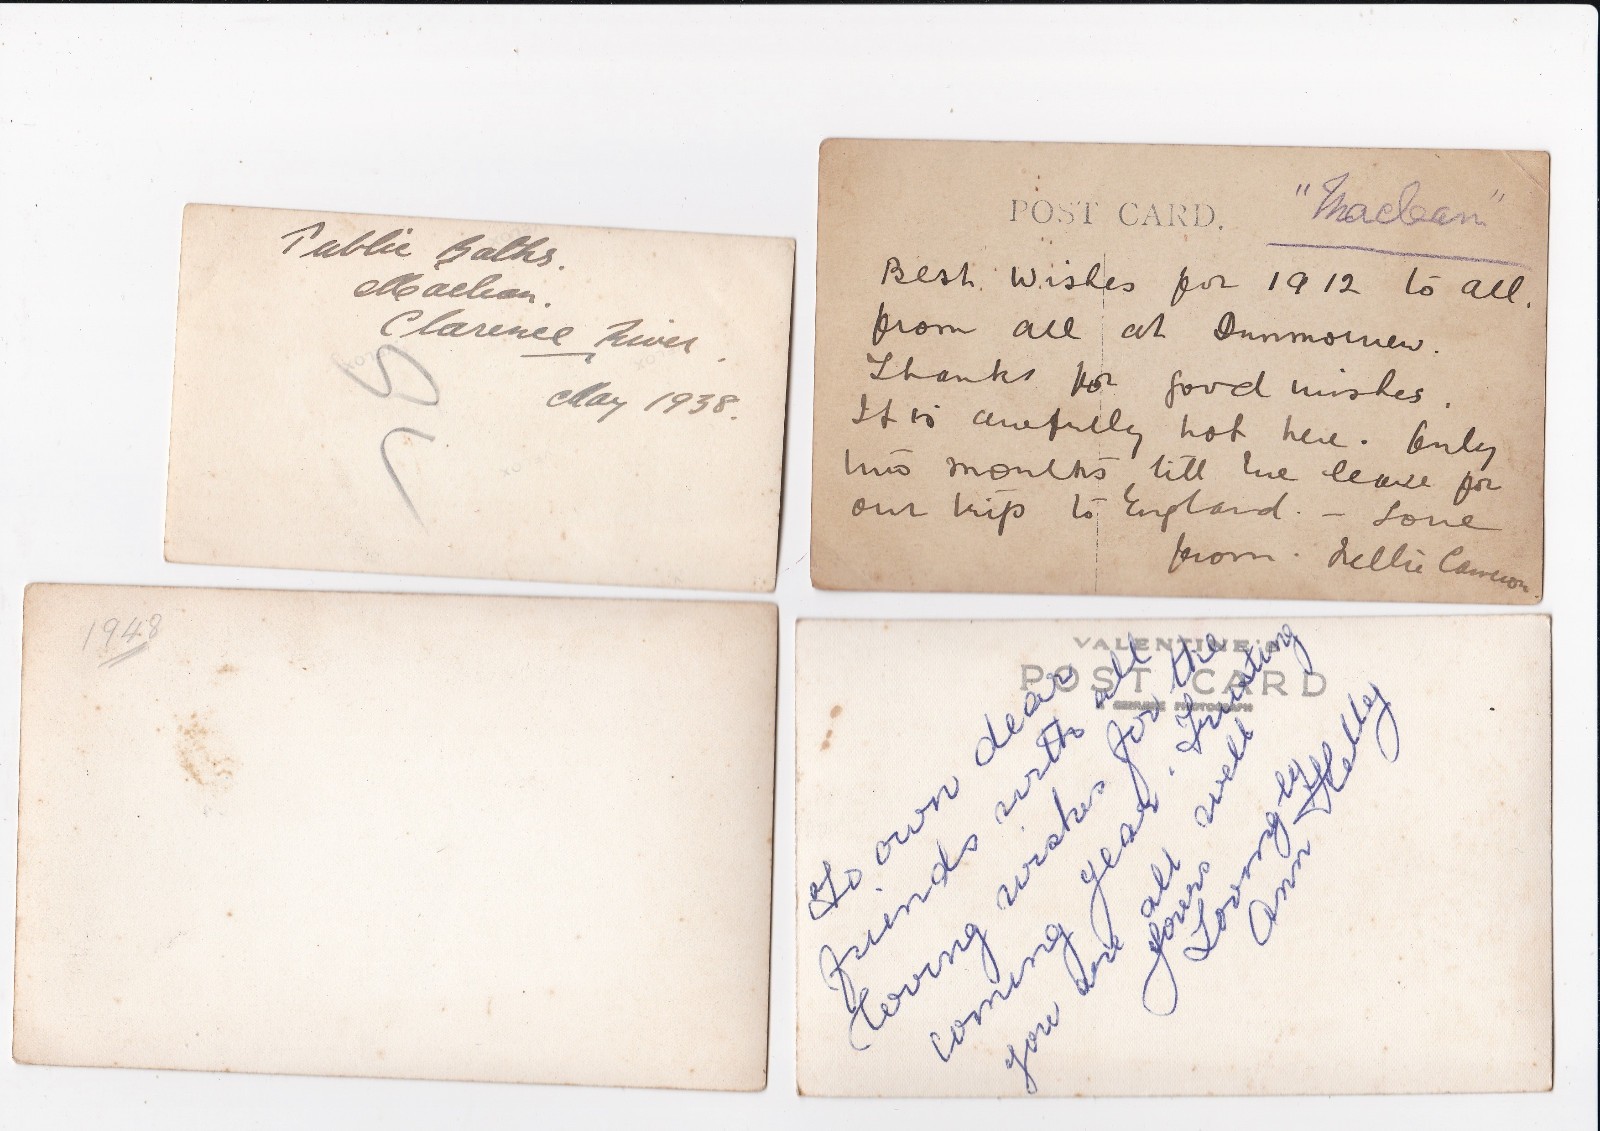 Public Baths.
Maclean.
Clarence River.
May 1938.
POST CARD.
"Maclean"
Best Wishes for 1912 to all.
from all at
Thanks for good wishes.
It is awefully hot here. Only
two months till we leave for
our trip to England. - Love
from. Nellie Cameron
1948
VALENTINE'S
POST CARD
A GENUINE PHOTOGRAPH
To own dear
friends with all
loving wishes for the
coming year. Trusting
you are all well
Yours
Lovingly
Ann Kelly